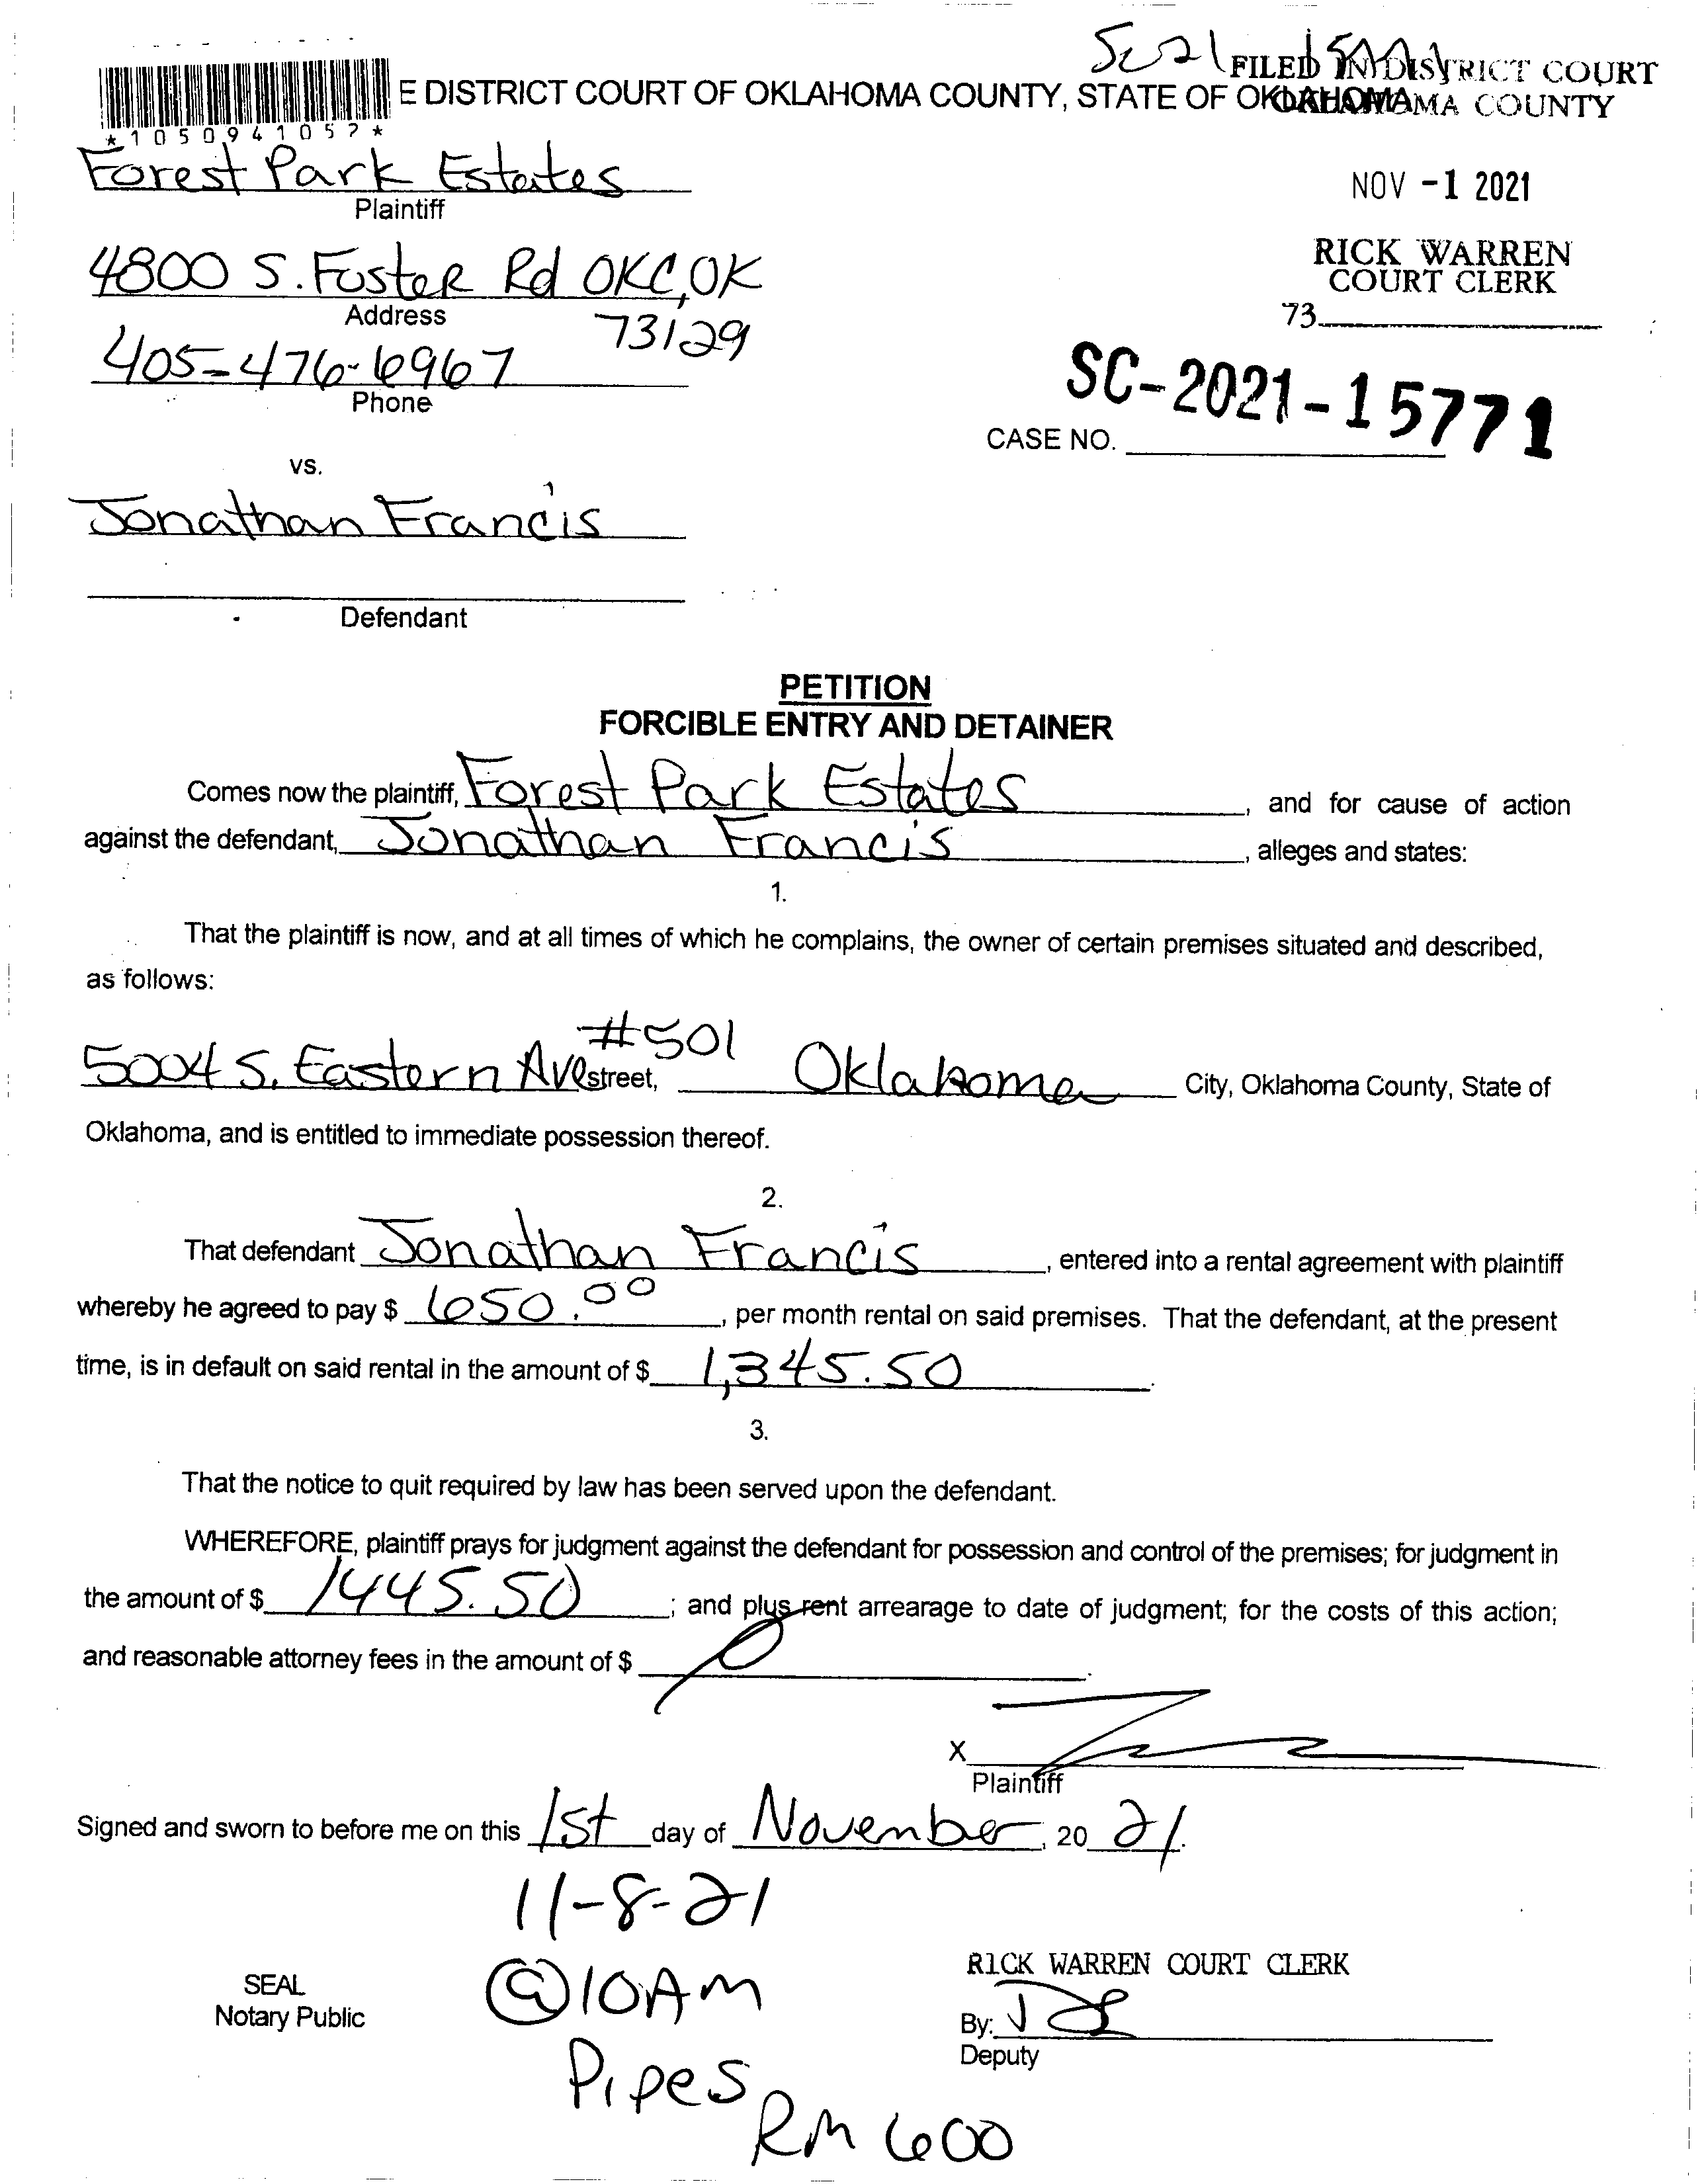 SC21 FILED IN DISTRICT COURT
E DISTRICT COURT OF OKLAHOMA COUNTY, STATE OF OKLAHOMA
OKLAHOMA COUNTY
*1050941052*
Forest Park Estates
Plaintiff
NOV -1 2021
4800 S. Foster Rd OKC, OK
Address
73129
RICK WARREN
COURT CLERK
73
405-476-6967
Phone
SC-2021-15771
CASE NO.
vs.
Jonathan Francis
Defendant
PETITION
FORCIBLE ENTRY AND DETAINER
Comes now the plaintiff, Forest Park Estates, and for cause of action
against the defendant, Jonathan Francis, alleges and states:
1.
That the plaintiff is now, and at all times of which he complains, the owner of certain premises situated and described,
as follows:
5004 S. Eastern Ave #501 street, Oklahoma City, Oklahoma County, State of
Oklahoma, and is entitled to immediate possession thereof.
2.
That defendant Jonathan Francis, entered into a rental agreement with plaintiff
whereby he agreed to pay $ 650.00, per month rental on said premises. That the defendant, at the present
time, is in default on said rental in the amount of $ 1,345.50.
3.
That the notice to quit required by law has been served upon the defendant.
WHEREFORE, plaintiff prays for judgment against the defendant for possession and control of the premises; for judgment in
the amount of $ 1445.50; and plus rent arrearage to date of judgment; for the costs of this action;
and reasonable attorney fees in the amount of $
X
Plaintiff
Signed and sworn to before me on this 1st day of November, 20 21.
11-8-21
@10AM
Pipes
RM 600
SEAL
Notary Public
RICK WARREN COURT CLERK
By:
Deputy